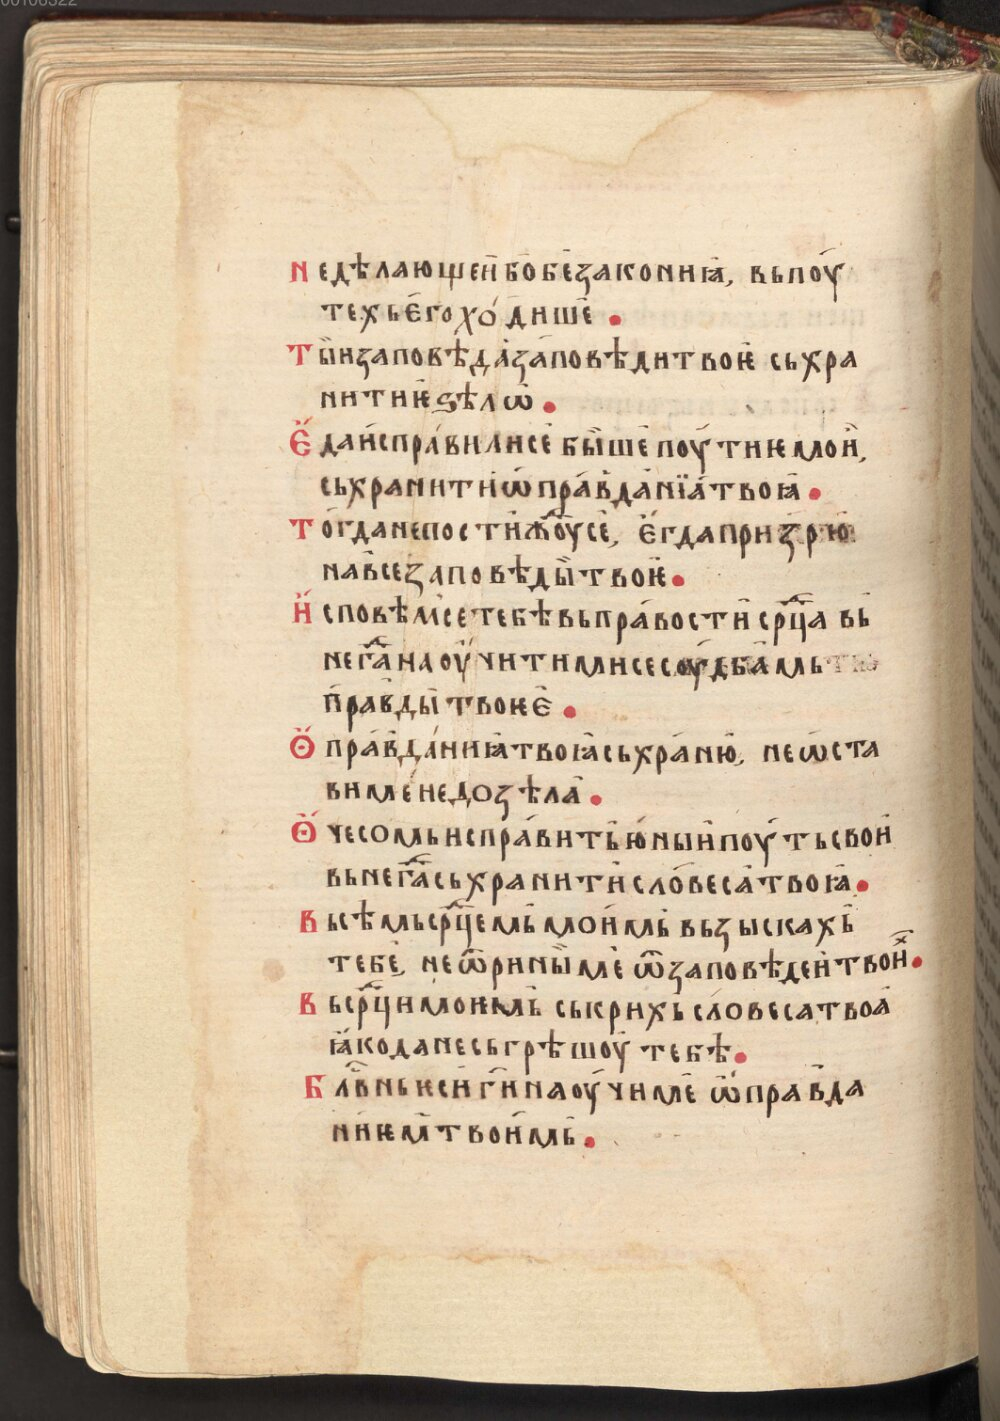 00108322
Не дѣлающеи бо безаконїꙗ, вь поу
техь его ходише.
Ты заповѣда заповѣди твоѥ сьхра
нити ѥ ѕѣлѡ.
Еда исправили се бише поутиѥ мои,
сьхранити ѡправданїа твоꙗ.
Тогда не постижоу се, ѥгда призрю
на все заповѣды твоѥ.
Исповѣм се тебѣ вь правости срⷣца вь
нѥгⷣа наоучити ми се соудбамь
правды твоѥ.
Ѡправданиꙗ твоꙗ сьхраню, не ѡста
ви ме не до зѣла.
Ѡ чесомь исправить юный поуть свои
вьнегⷣа сьхранити словеса твоꙗ.
Вьсѣмь срⷣцемь моимь вьзыскахь
тебе, не ѿрины ме ѿ заповѣдеи твоиⷯ.
Вь срⷣци моѥмь ськрихь словеса твоа
ꙗко да не сьгрѣшоу тебѣ.
Блⷭвнь ѥси ги наоучи ме ѡправда
ниѥм твоимь.